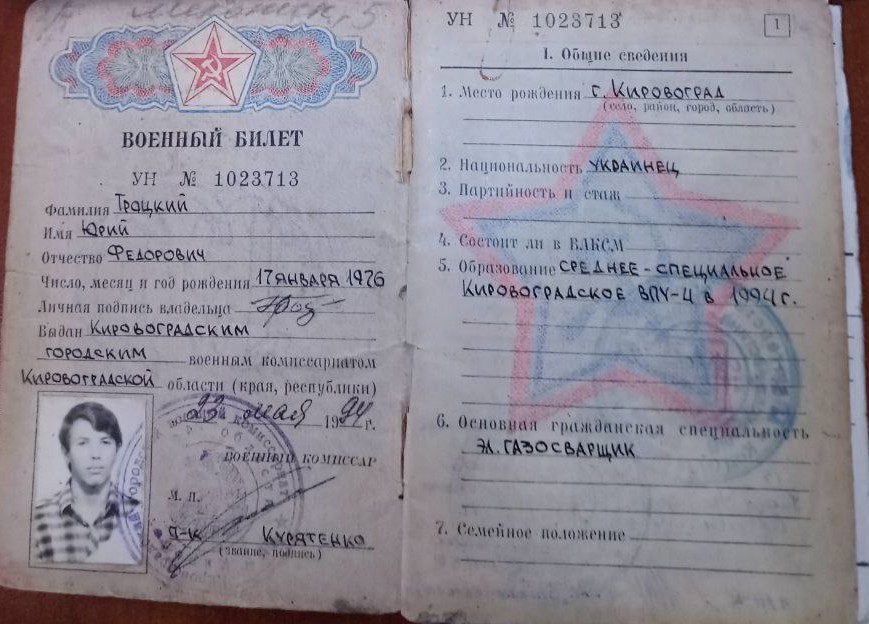 ВОЕННЫЙ БИЛЕТ
УН № 1023713
Фамилия Троцкий
Имя Юрий
Отчество Федорович
Число, месяц и год рождения 17 января 1976
Личная подпись владельца
Выдан Кировоградским
городским военным комиссариатом
Кировоградской области (края, республики)
23 мая 1994 г.
ВОЕННЫЙ КОМИССАР
М. П.
П-к Курятенко
(звание, подпись)
УН № 1023713
1
I. Общие сведения
1. Место рождения г. Кировоград
(село, район, город, область)
2. Национальность украинец
3. Партийность и стаж
4. Состоит ли в ВЛКСМ
5. Образование среднее-специальное
Кировоградское ВПУ-4 в 1994 г.
6. Основная гражданская специальность
эл. газосварщик
7. Семейное положение